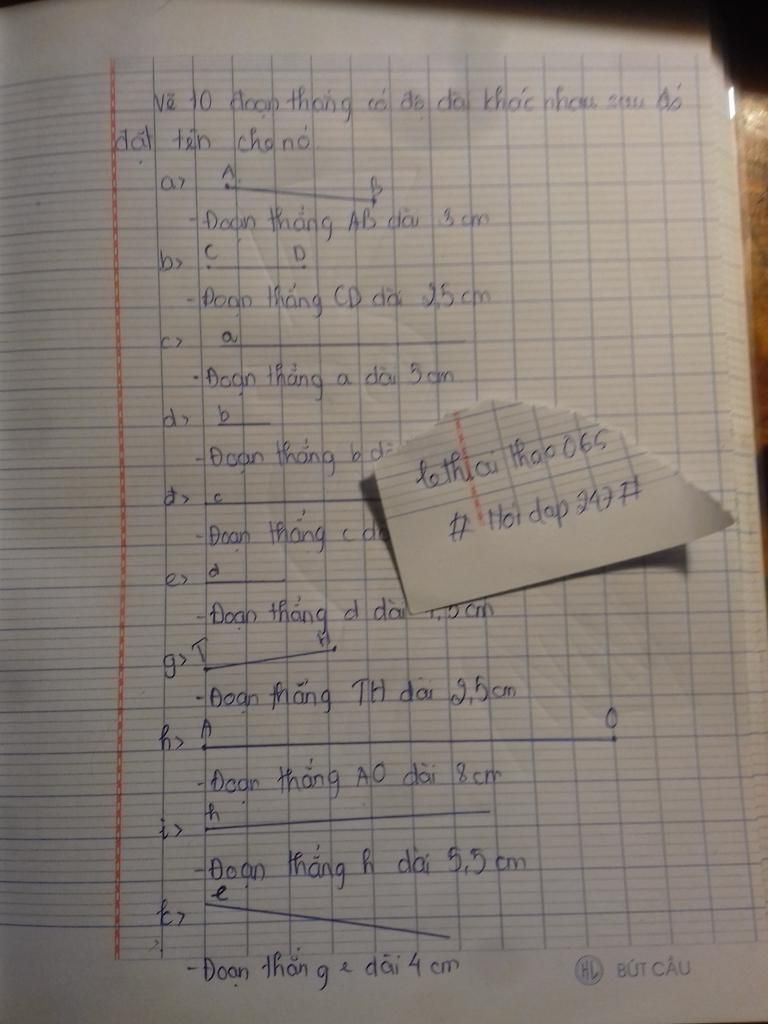 Vẽ 10 đoạn thẳng có độ dài khác nhau sau đó
đặt tên cho nó
a> A B
- Đoạn thẳng AB dài 3 cm
b> C D
- Đoạn thẳng CD dài 2,5 cm
c> a
- Đoạn thẳng a dài 5 cm
d> b
- Đoạn thẳng b
đ> c
- Đoạn thẳng c
e> d
- Đoạn thẳng d dài 1,5 cm
g> T H
- Đoạn thẳng TH dài 2,5 cm
h> A O
- Đoạn thẳng AO dài 8 cm
i> h
- Đoạn thẳng h dài 5,5 cm
k> e
- Đoạn thẳng e dài 4 cm
065
# Hoi dap 247 #
HL BÚT CÂU